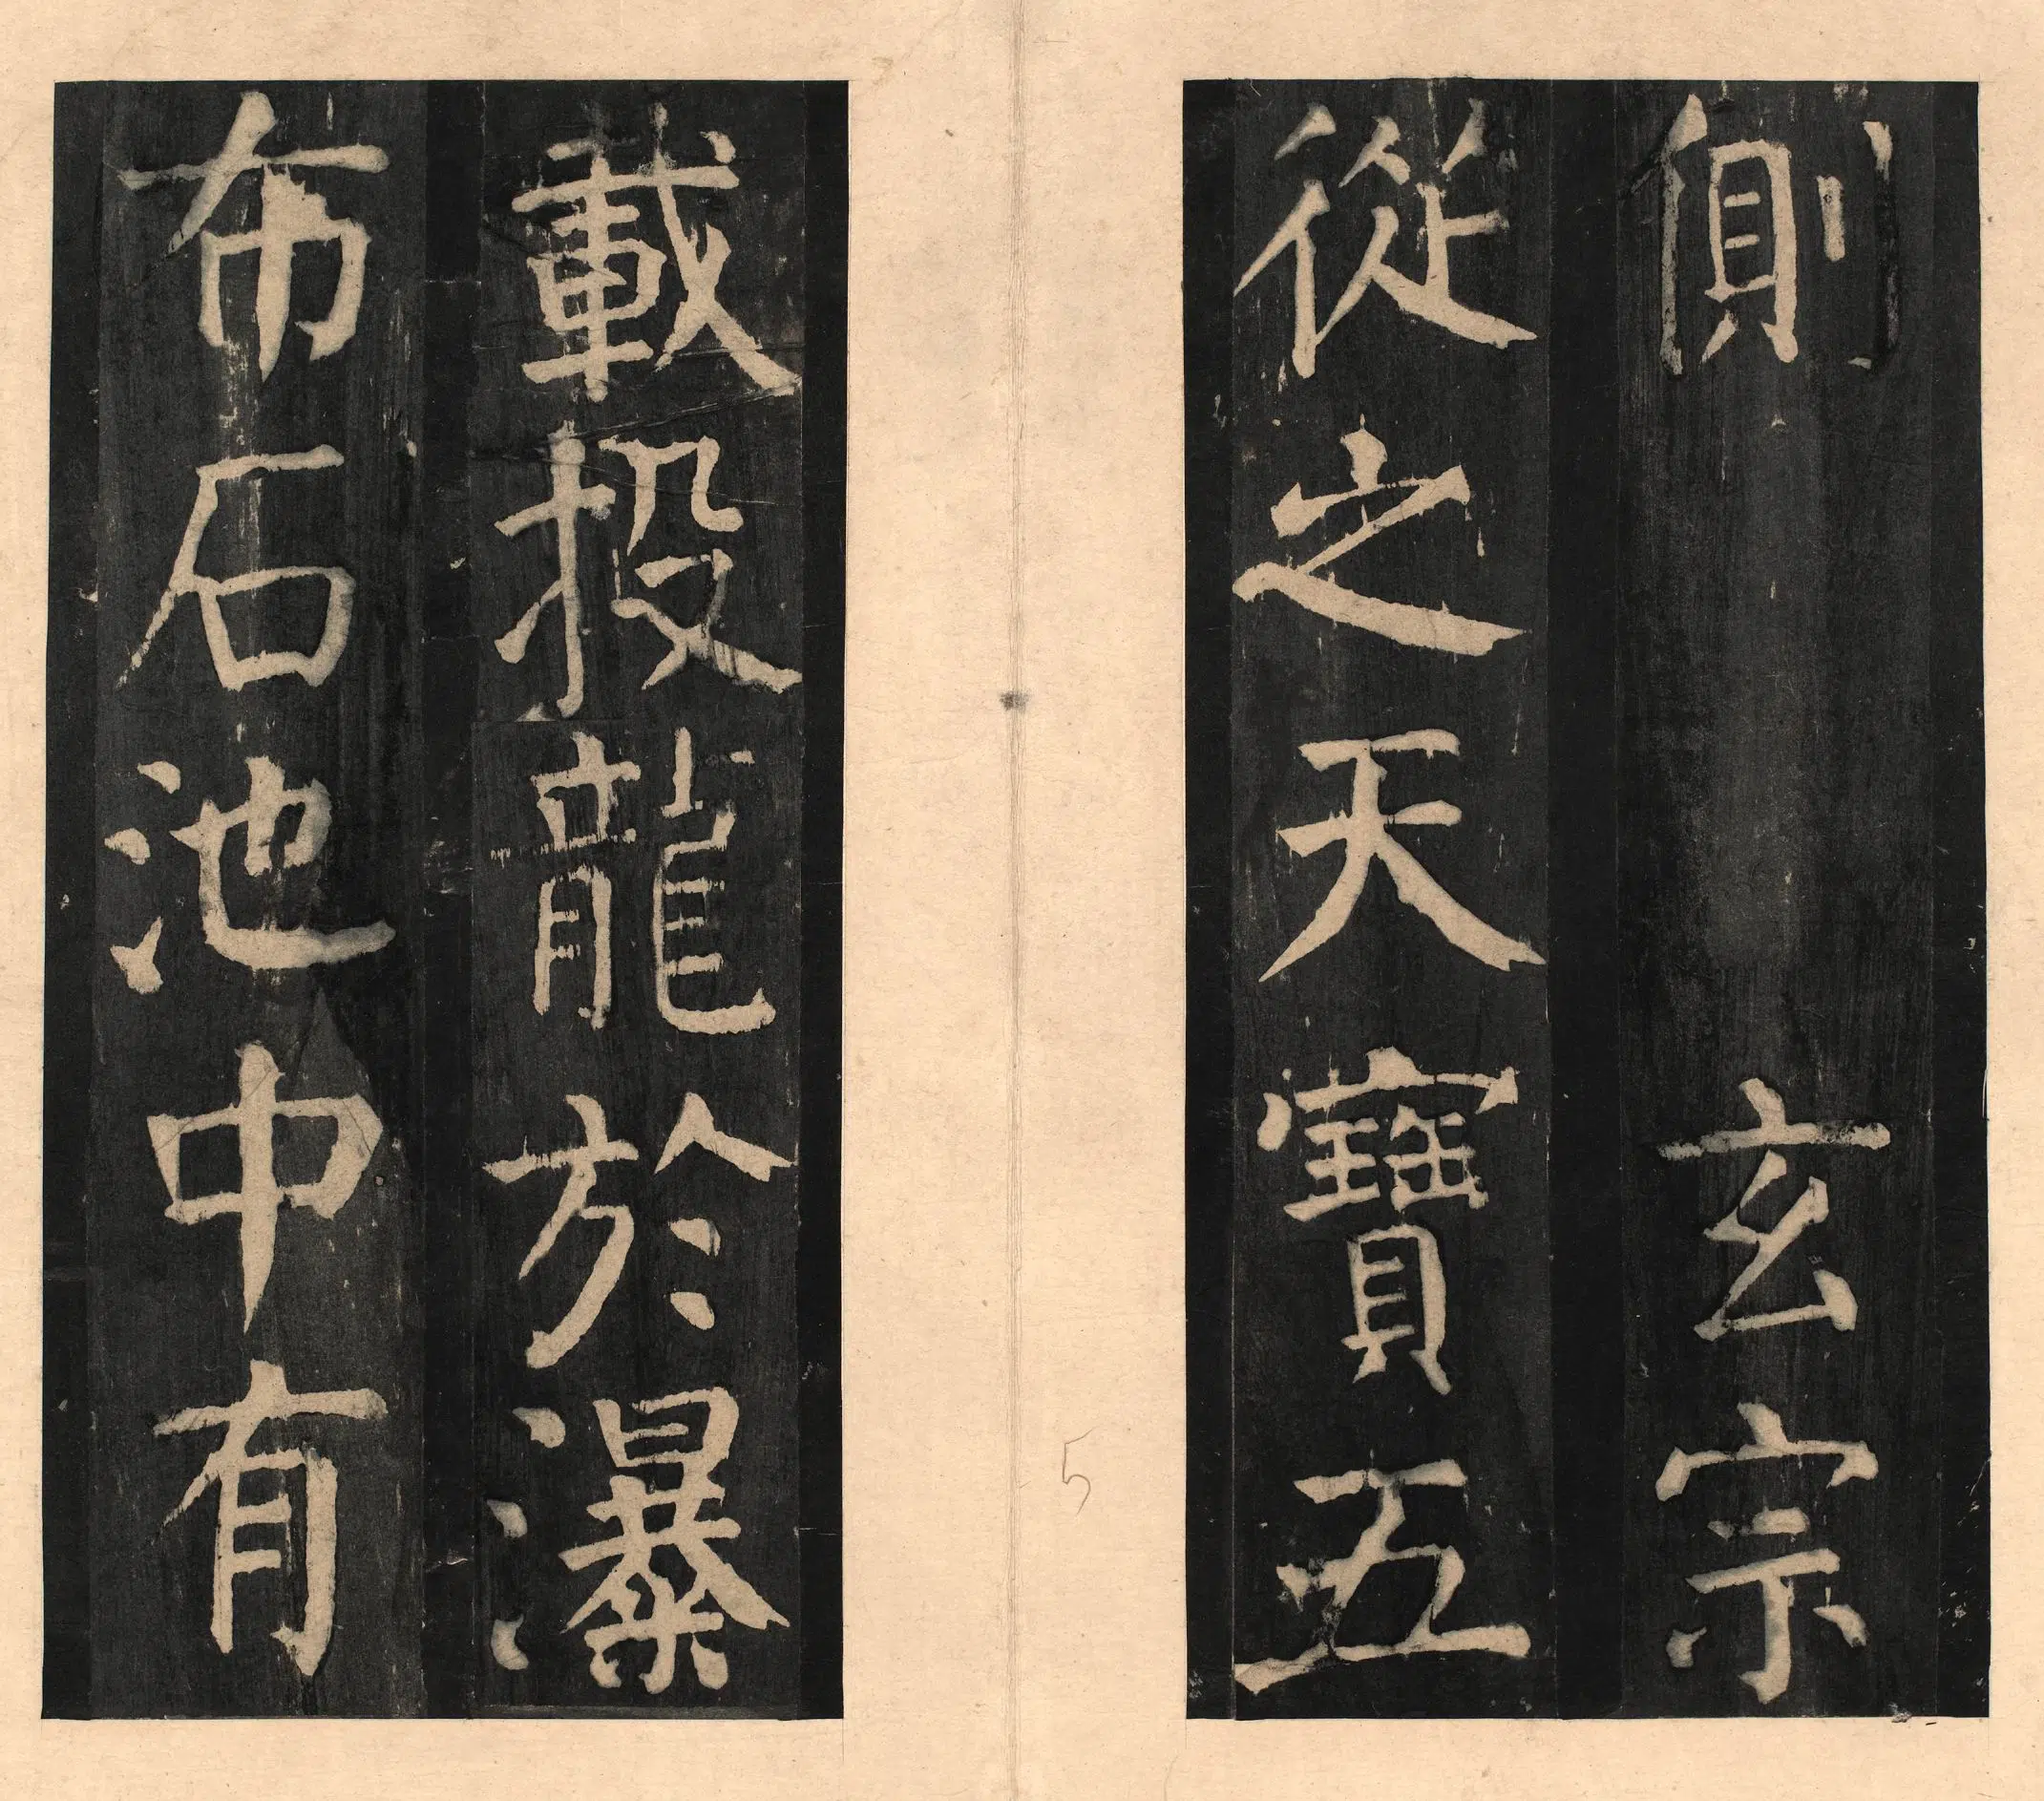 側玄宗
從之天寶五
載投龍於瀑
布石池中有
5